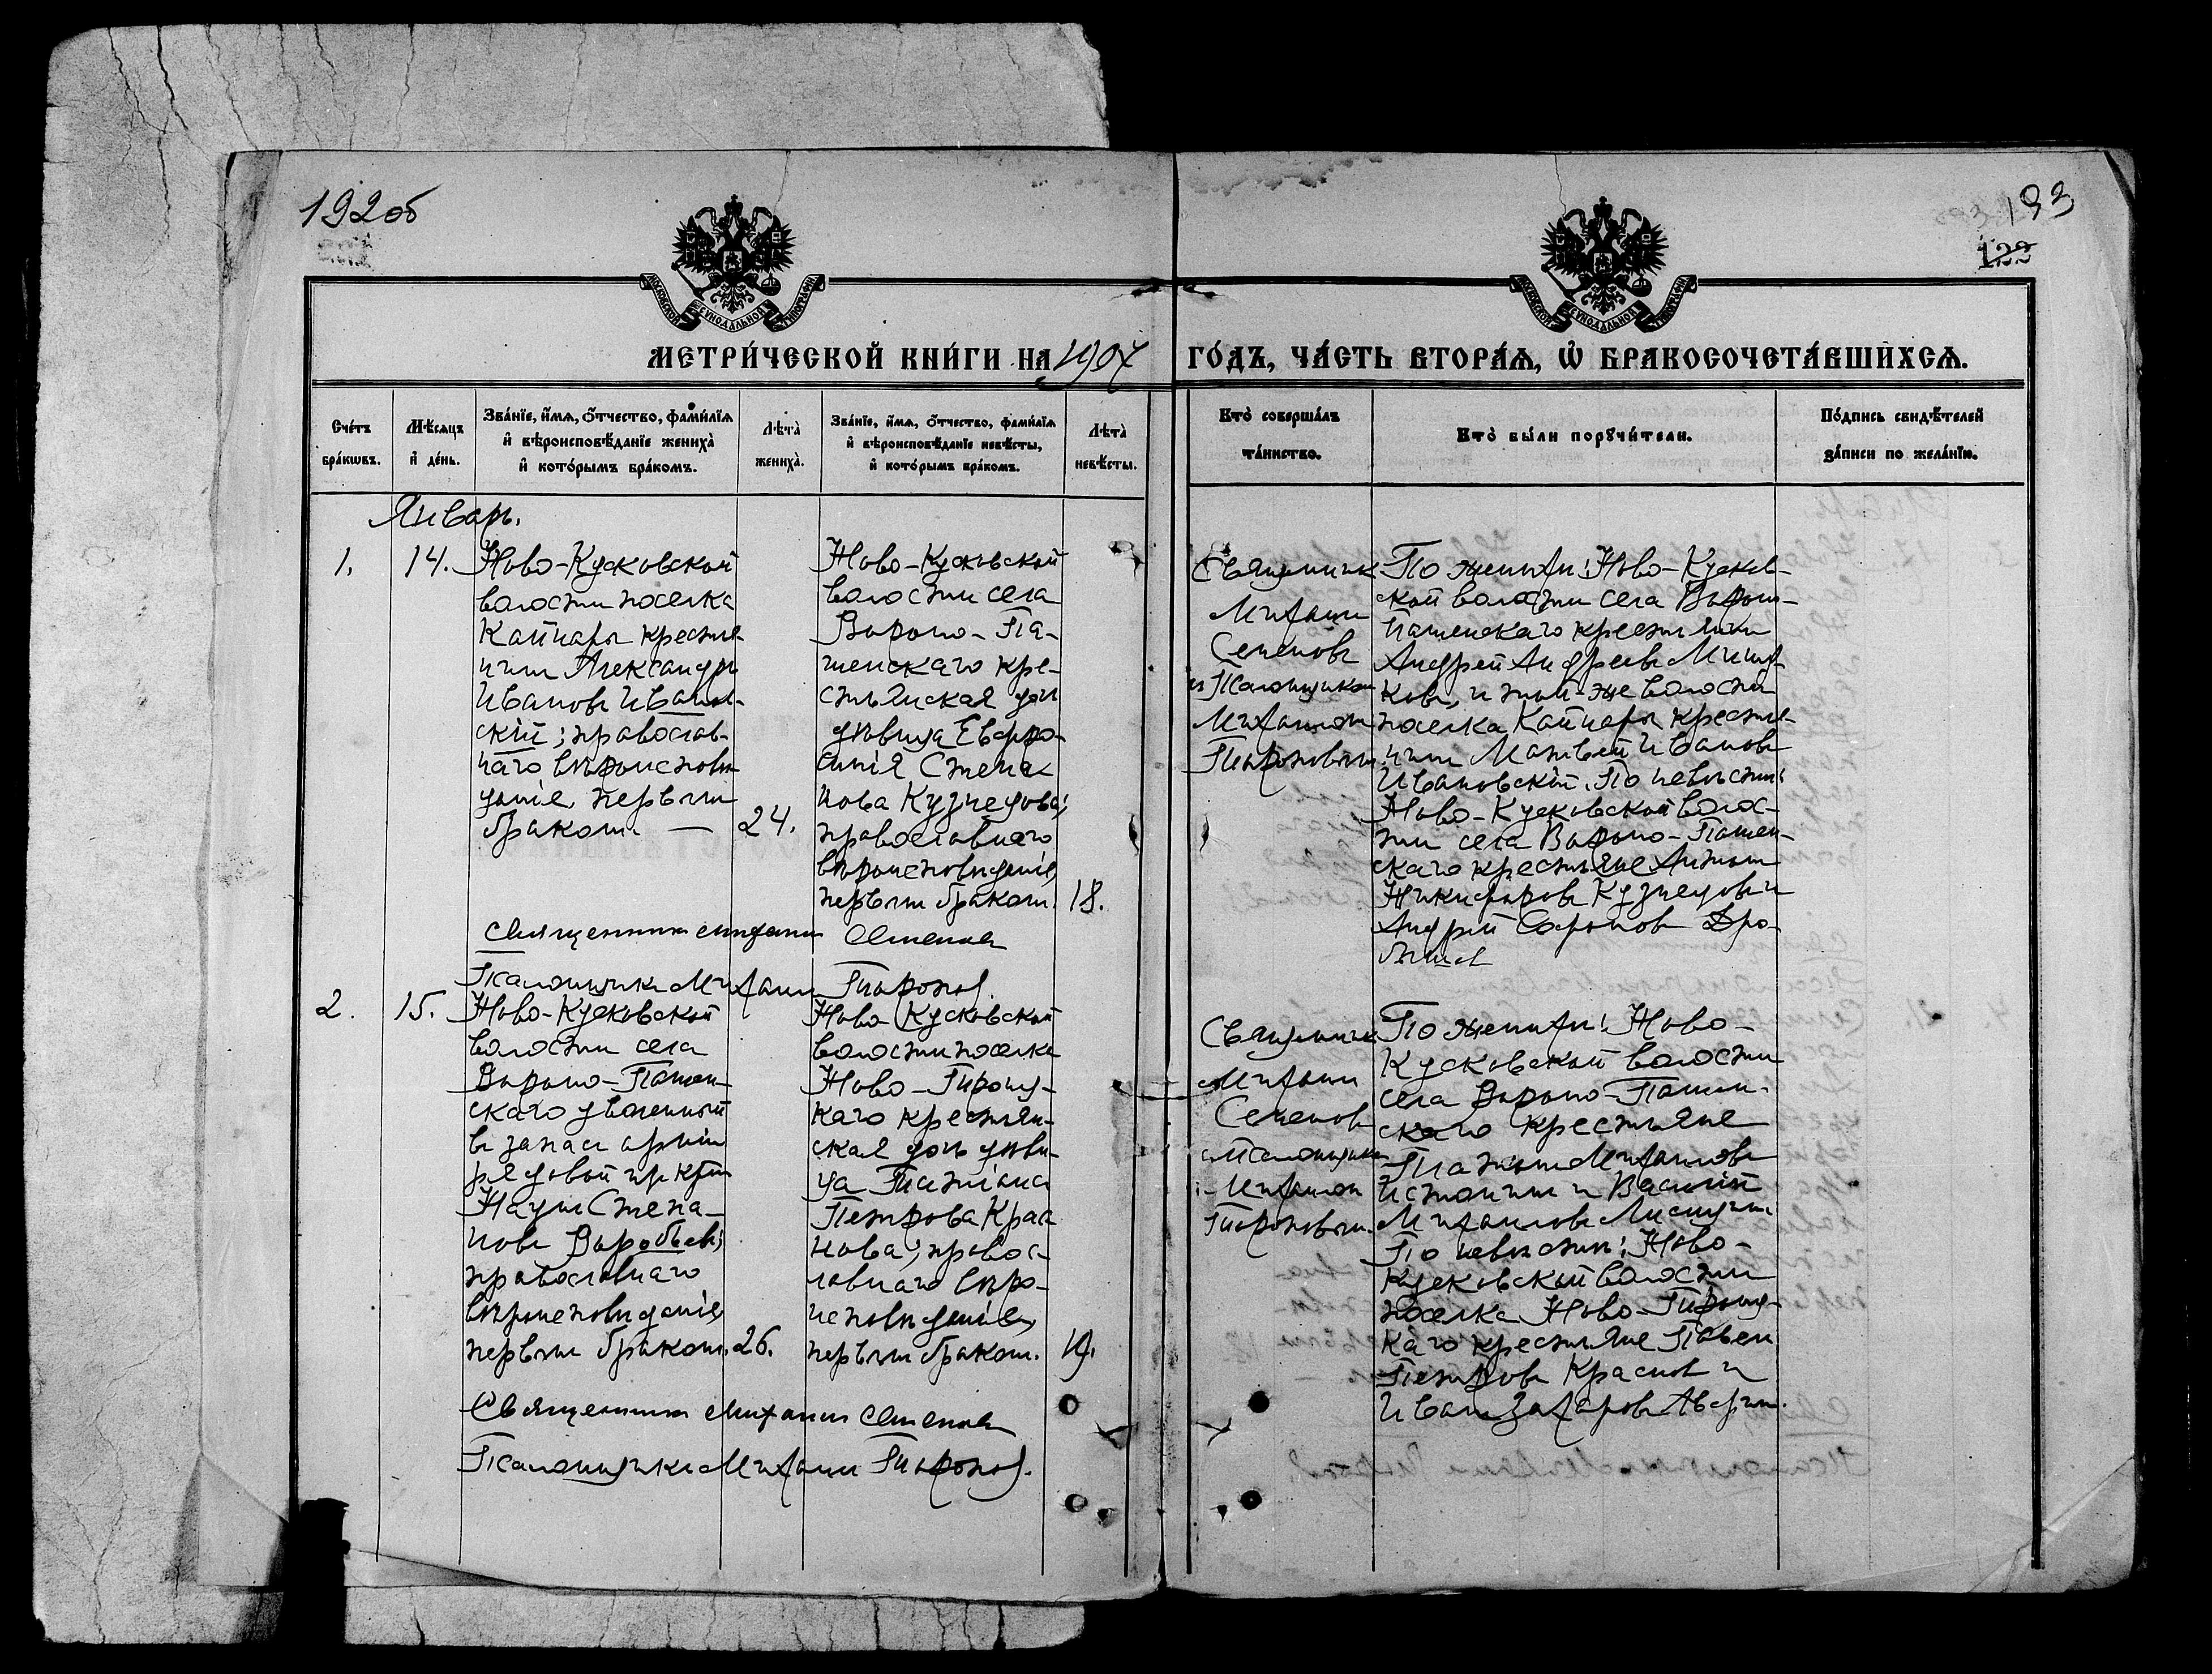 192об
193
122
МЕТРИ́ЧЕСКОЙ КНИ́ГИ НА 1907 ГО́ДЪ, ЧА́СТЬ ВТОРА́Ѧ, Ѡ҆ БРАКОСОЧЕТА́ВШИХСѦ.
Сче́тъ
бра́кѡвъ.
Мѣ́сѧцъ
и҆ де́нь.
Зва́нїе, и҆́мѧ, ѻ҆́тчество, фами́лїѧ
и҆ вѣроисповѣ́данїе жениха̀
и҆ кото́рымъ бра́комъ.
Лѣта̀
жениха̀.
Зва́нїе, и҆́мѧ, ѻ҆́тчество, фами́лїѧ
и҆ вѣроисповѣ́данїе невѣ́сты,
и҆ кото́рымъ бра́комъ.
Лѣта̀
невѣ́сты.
Кто̀ соверша́лъ
та́инство.
Кто̀ бы́ли порꙋчи́тели.
По́дпись свидѣ́телей
за́писи по жела́нїю.
Январь.
1.
14.
Ново-Кусковской
волости поселка
Кайнары крестья-
нинъ Александръ
Ивановъ Иванов-
скій; православ-
наго вѣроисповѣ-
данія, первымъ
бракомъ —
24.
Ново-Кусковской
волости села
Вороно-Па-
шенскаго кре-
стьянская дочь
дѣвица Евдо-
Степа-
нова Кузнецова;
православнаго
вѣроисповѣданія,
первымъ бракомъ.
18.
Священникъ
Михаилъ
Семеновъ
и Псаломщикомъ
Михаиломъ
По женихѣ: Ново-Кусков-
ской волости села Вороно-
Пашенскаго крестьянинъ
Андрей Андреевъ
ковъ, и той-же волости
поселка Кайнары крестья-
нинъ Матвей Ивановъ
Ивановскій. По невѣстѣ:
Ново-Кусковской волос-
ти села Вороно-Пашен-
скаго крестьяне Антонъ
Никифоровъ Кузнецовъ и
Андрей
Священникъ Михаилъ Семеновъ
Псаломщикъ Михаилъ
2.
15.
Ново-Кусковской
волости села
Вороно-Пашен-
скаго уволенный
въ запасъ арміи
рядовой
Наумъ Степа-
новъ Воробьевъ;
православнаго
вѣроисповѣданія,
первымъ бракомъ.
26.
Ново Кусковской
волости поселка
Ново-Троиц-
каго крестьян-
ская дочь дѣви-
ца Татіана
Петрова Крас-
нова; правос-
лавнаго вѣро-
исповѣданія,
первымъ бракомъ.
19.
Священникъ
Михаилъ
Семеновъ
и Псаломщикъ
Михаилом
По женихѣ: Ново-
Кусковской волости
села Вороно-Пашен-
скаго крестьяне
Платонъ Михаиловъ
Истоминъ и Василій
Михаиловъ
По невѣстѣ: Ново-
Кусковской волости
поселка Ново-Троиц-
каго крестьяне Павелъ
Петровъ Красновъ и
Иванъ Захаровъ Аверин.
Священникъ Михаилъ Семеновъ
Псаломщикъ Михаилъ